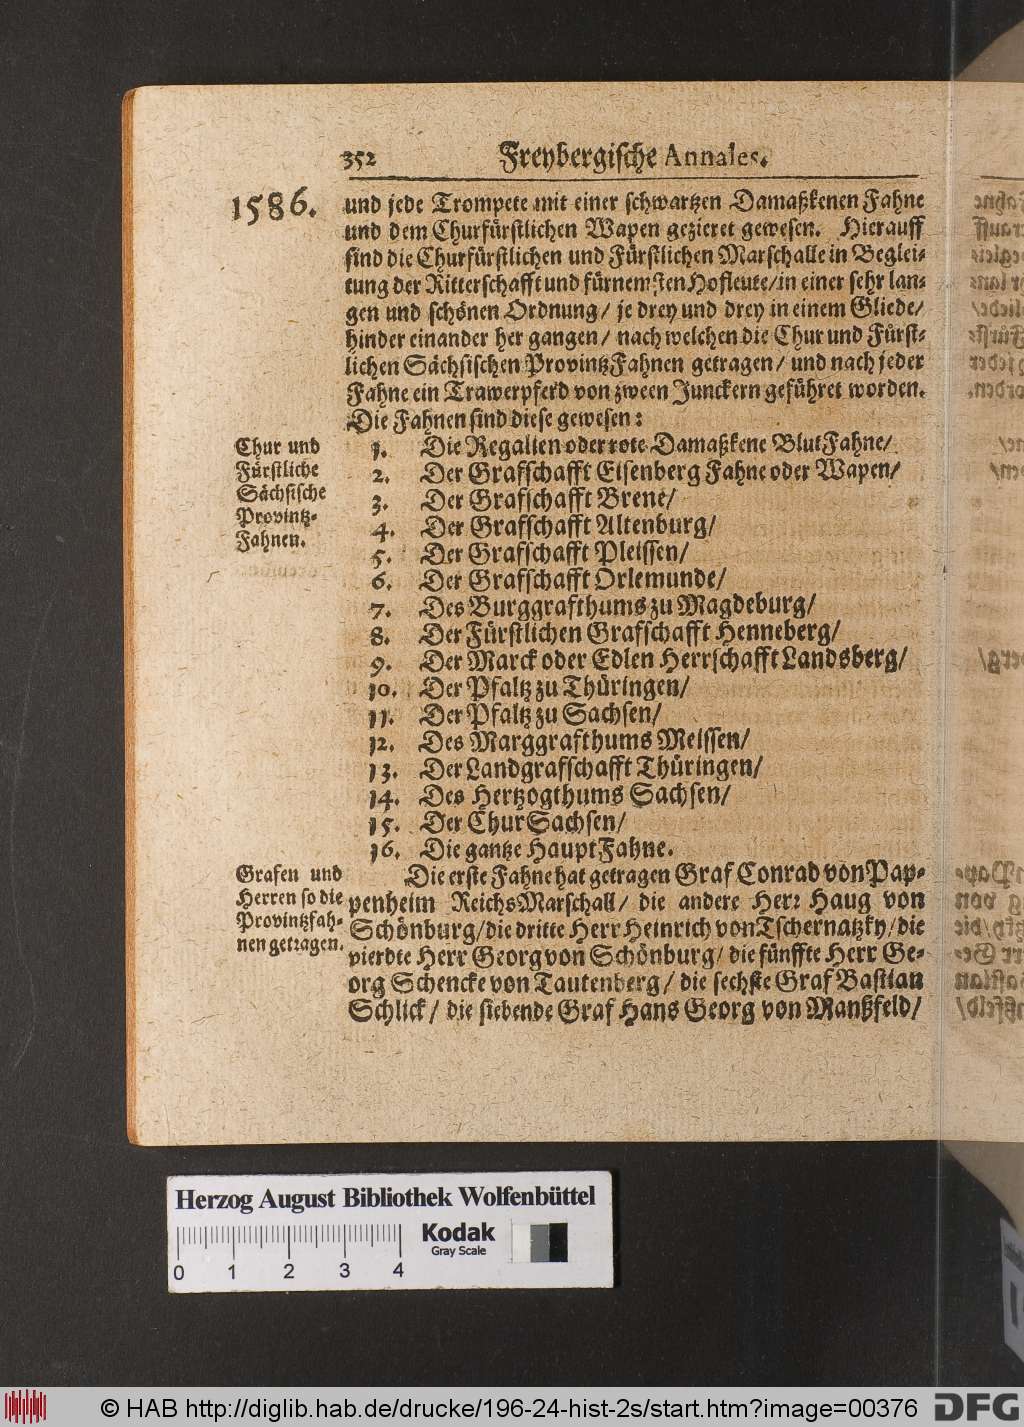 352 Freybergische Annales.
1586.
und jede Trompete mit einer schwartzen Damaßkenen Fahne
und dem Churfürstlichen Wapen gezieret gewesen. Hierauff
sind die Churfürstlichen und Fürstlichen Marschalle in Beglei-
tung der Ritterschafft und fürnemsten Hofleute/in einer sehr lan-
gen und schönen Ordnung/ je drey und drey in einem Gliede/
hinder einander her gangen/ nach welchen die Chur und Fürst-
lichen Sächsischen ProvintzFahnen getragen/ und nach jeder
Fahne ein Trawerpferd von zween Junckern geführet worden.
Die Fahnen sind diese gewesen:
Chur und
Fürstliche
Sächsische
Provintz-
Fahnen.
1. Die Regalien oder rote Damaßkene BlutFahne/
2. Der Grafschafft Eisenberg Fahne oder Wapen/
3. Der Grafschafft Brene/
4. Der Grafschafft Altenburg/
5. Der Grafschafft Pleissen/
6. Der Grafschafft Orlemunde/
7. Des Burggrafthums zu Magdeburg/
8. Der Fürstlichen Grafschafft Henneberg/
9. Der Marck oder Edlen Herrschafft Landsberg/
10. Der Pfaltz zu Thüringen/
11. Der Pfaltz zu Sachsen/
12. Des Marggrafthums Meissen/
13. Der Landgrafschafft Thüringen/
14. Des Hertzogthums Sachsen/
15. Der Chur Sachsen/
16. Die gantze HauptFahne.
Grafen und
Herren so die
Provintzfah-
nen getragen.
Die erste Fahne hat getragen Graf Conrad von Pap-
penheim ReichsMarschall/ die andere Herr Haug von
Schönburg/die dritte Herr Heinrich von Tschernatzky/die
vierdte Herr Georg von Schönburg/ die fünffte Herr Ge-
org Schencke von Tautenberg/ die sechste Graf Bastian
Schlick/ die siebende Graf Hans Georg von Manßfeld/
Herzog August Bibliothek Wolfenbüttel
Kodak
Gray Scale
0 1 2 3 4
© HAB http://diglib.hab.de/drucke/196-24-hist-2s/start.htm?image=00376
DFG